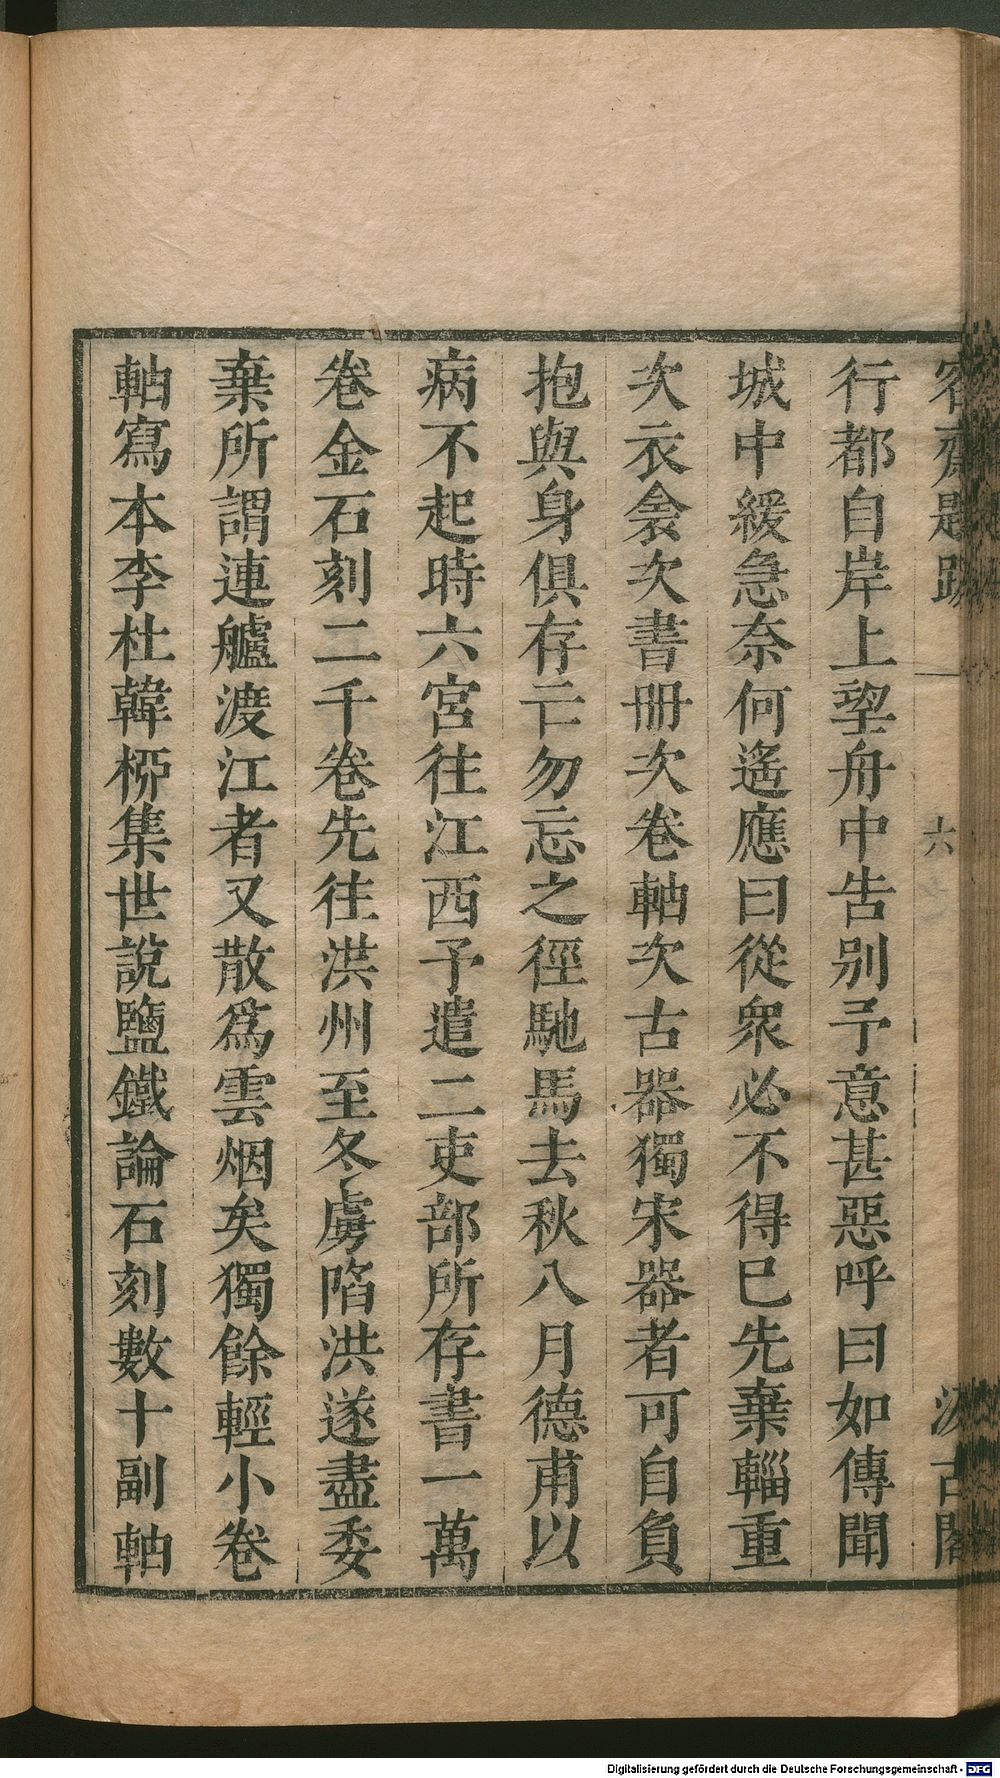 容齋題跋 六 汲古閣
行都自岸上望舟中告别予意甚惡呼曰如傳聞
城中緩急奈何遙應曰從衆必不得已先棄輜重
次衣衾次書冊次卷軸次古器獨宋器者可自負
抱與身俱存亡勿忘之徑馳馬去秋八月德甫以
病不起時六宮往江西予遣二吏部所存書一萬
卷金石刻二千卷先往洪州至冬虜陷洪遂盡委
棄所謂連艫渡江者又散爲雲烟矣獨餘輕小卷
軸寫本李杜韓栁集世說鹽鐵論石刻數十副軸
Digitalisierung gefördert durch die Deutsche Forschungsgemeinschaft - DFG